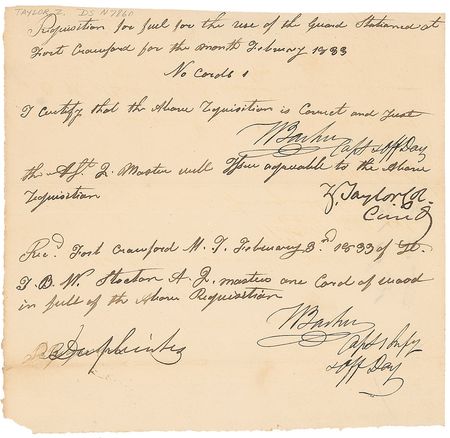 TAYLOR, Z. DS N7860
Requisition for fuel for the use of the Guard Stationed at
Fort Crawford for the month February 1833
No Cords 1
I Certify that the Above Requisition is Correct and Just
Capt & Off Day
the Asst Q. Master will Issue agreeable to the Above
Requisition
Z. Taylor Col.
Comd
Recd Fort Crawford M. T. February 3rd 1833 of Lt.
T. B. W. Stockton A. Q. master one Cord of wood
in full of the Above Requisition
Capt 1 Infy
& Off Day